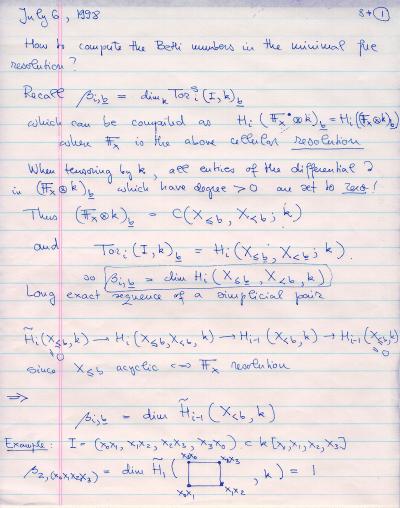 July 6, 1998 S+①
How to compute the Betti numbers in the minimal free
resolution?
Recall β_{i,b} = dim_k Tor_i^S (I, k)_b
which can be computed as H_i (F_x^• ⊗ k)_b = H_i (F_x ⊗ k)_b
where F_x is the above cellular resolution
When tensoring by k, all entries of the differential ∂
in (F_x ⊗ k)_b which have degree > 0 are set to zero!
Thus (F_x ⊗ k)_b = C(X_{≤b}, X_{<b}; k)
and Tor_i (I, k)_b = H_i (X_{≤b}, X_{<b}; k).
so β_{i,b} = dim H_i (X_{≤b}, X_{<b}, k)
Long exact sequence of a simplicial pair
H̃_i (X_{≤b}, k) → H_i (X_{≤b}, X_{<b}, k) → H_{i-1} (X_{<b}, k) → H_{i-1} (X_{≤b}, k)
0 0
since X_{≤b} acyclic ⇔ F_x resolution
⇒ β_{i,b} = dim H̃_{i-1} (X_{<b}, k)
Example: I = (x₀x₁, x₁x₂, x₂x₃, x₃x₀) ⊂ k[x₀,x₁,x₂,x₃]
x₃x₀ x₂x₃
β_{2,(x₀x₁x₂x₃)} = dim H̃₁ ( , k) = 1
x₀x₁ x₁x₂